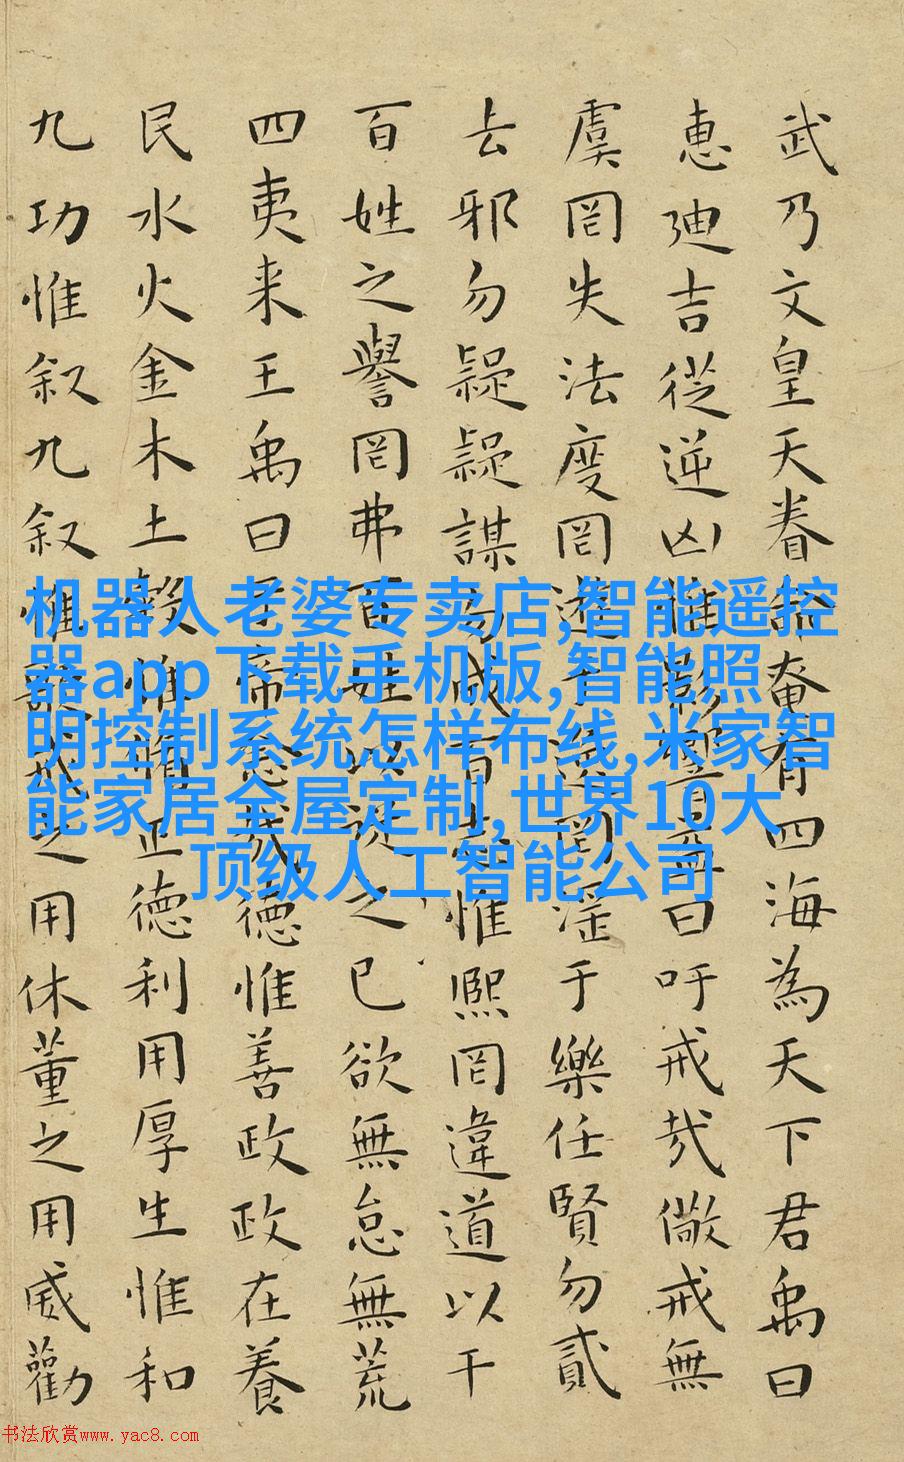 武乃文皇天眷奄有四海為天下君禹曰
惠迪吉從逆凶惟影響益曰吁戒哉儆戒無
虞罔失法度罔遊于逸罔淫于樂任賢勿貳
去邪勿疑疑謀勿成百志惟熙罔違道以干
百姓之譽罔弗百姓以從之己欲無怠無荒
四夷来王禹曰帝念哉德惟善政政在養
民水火金木土穀惟脩正德利用厚生惟和
九功惟叙九叙惟歌戒之用休董之用威勸
机器人老婆专卖店,智能遥控
器app下载手机版,智能照
明控制系统怎样布线,米家智
能家居全屋定制,世界10大
顶级人工智能公司
书法欣赏www.yac8.com